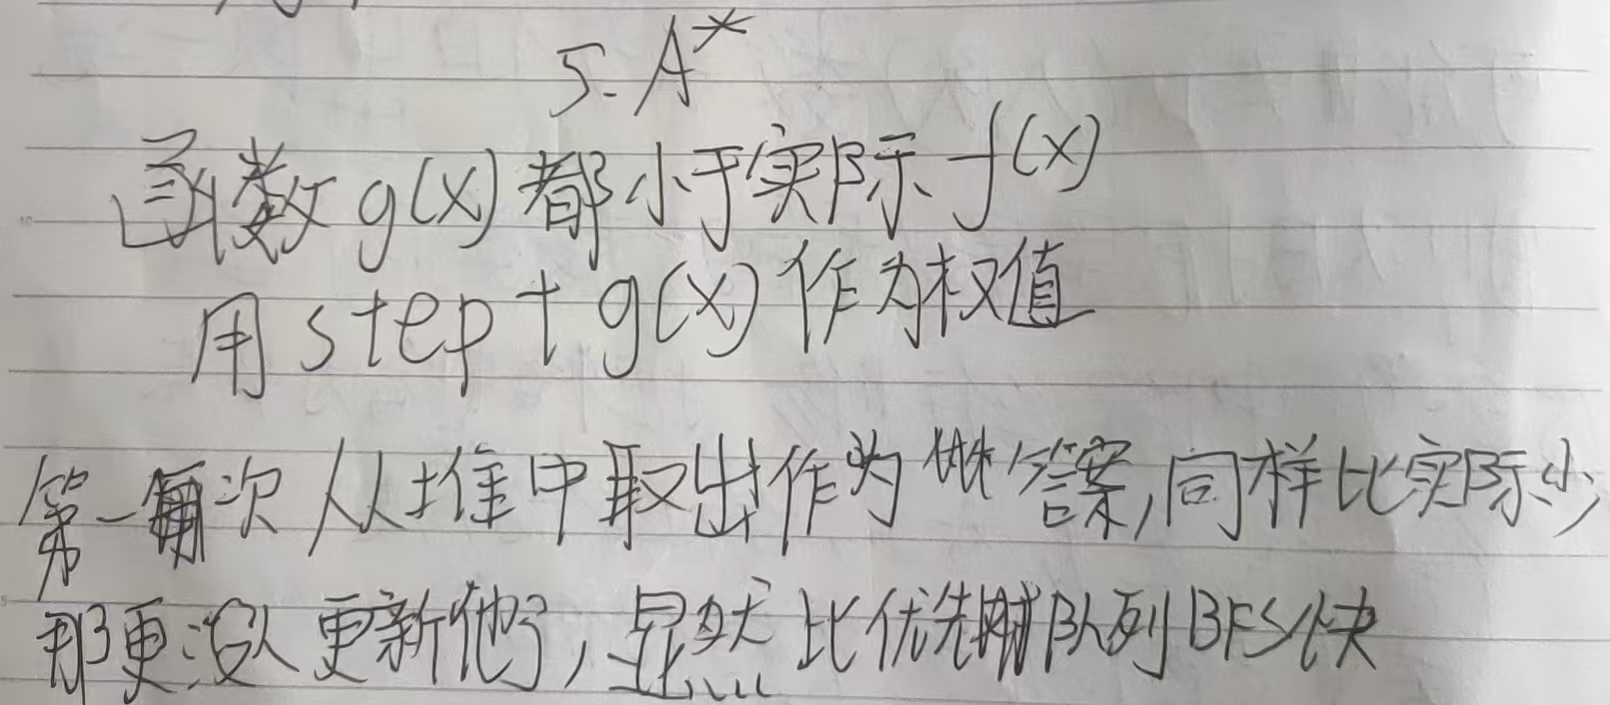 5. A*
函数g(x)都小于实际f(x)
用step+g(x)作为权值
第一次从堆中取出作为答案,同样比实际少
那更没人更新他了,显然比优先队列BFS快